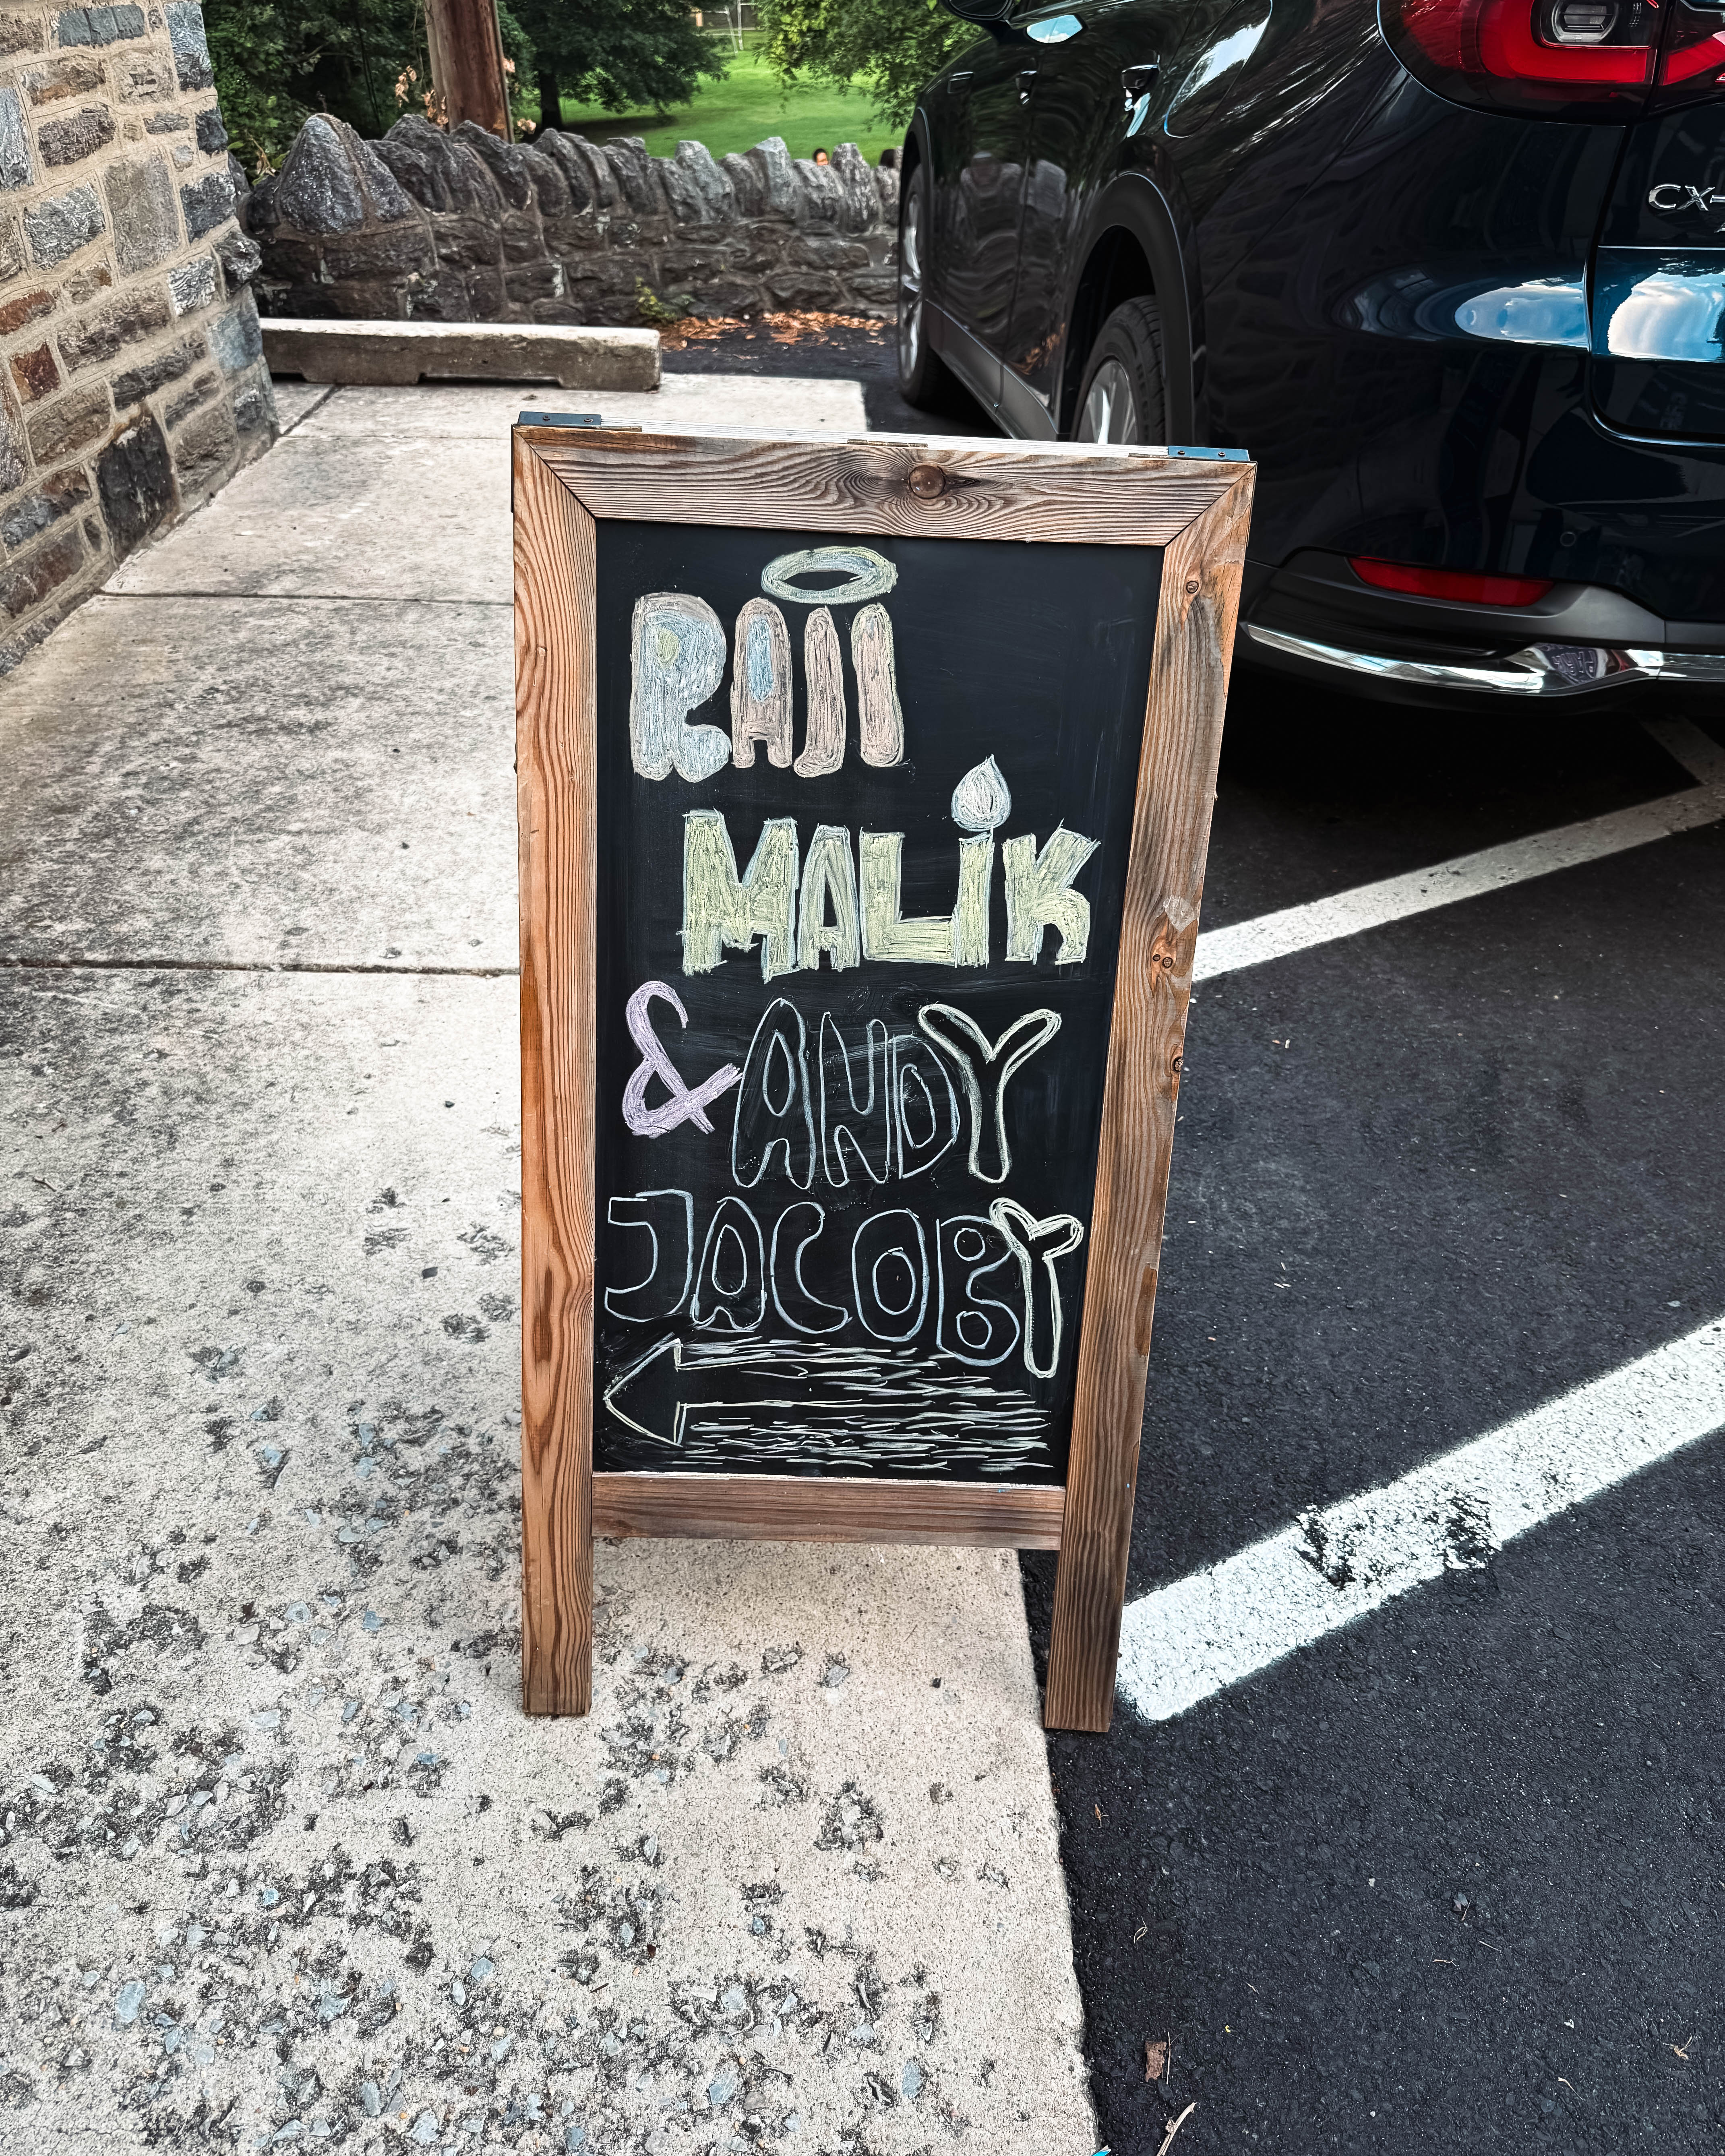 CX-
RAJI
MALIK
& ANDY
JACOBY